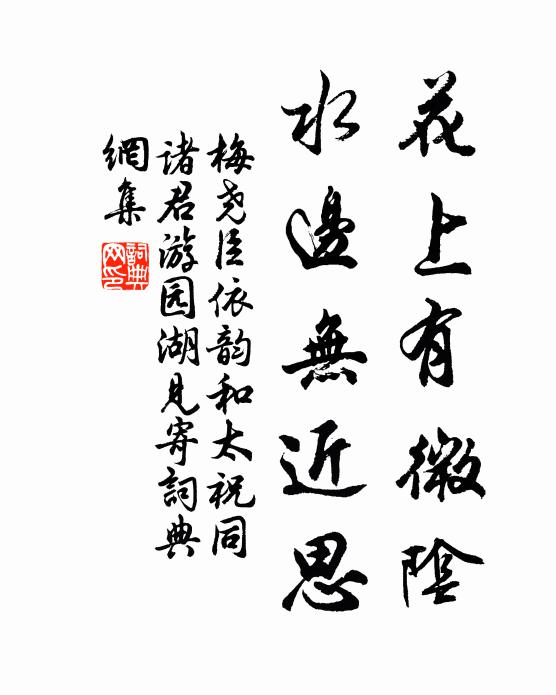 花上有微陰
水邊無近思
梅尧臣依韵和太祝同
诸君游园湖見寄詞典
網集
詞典網印